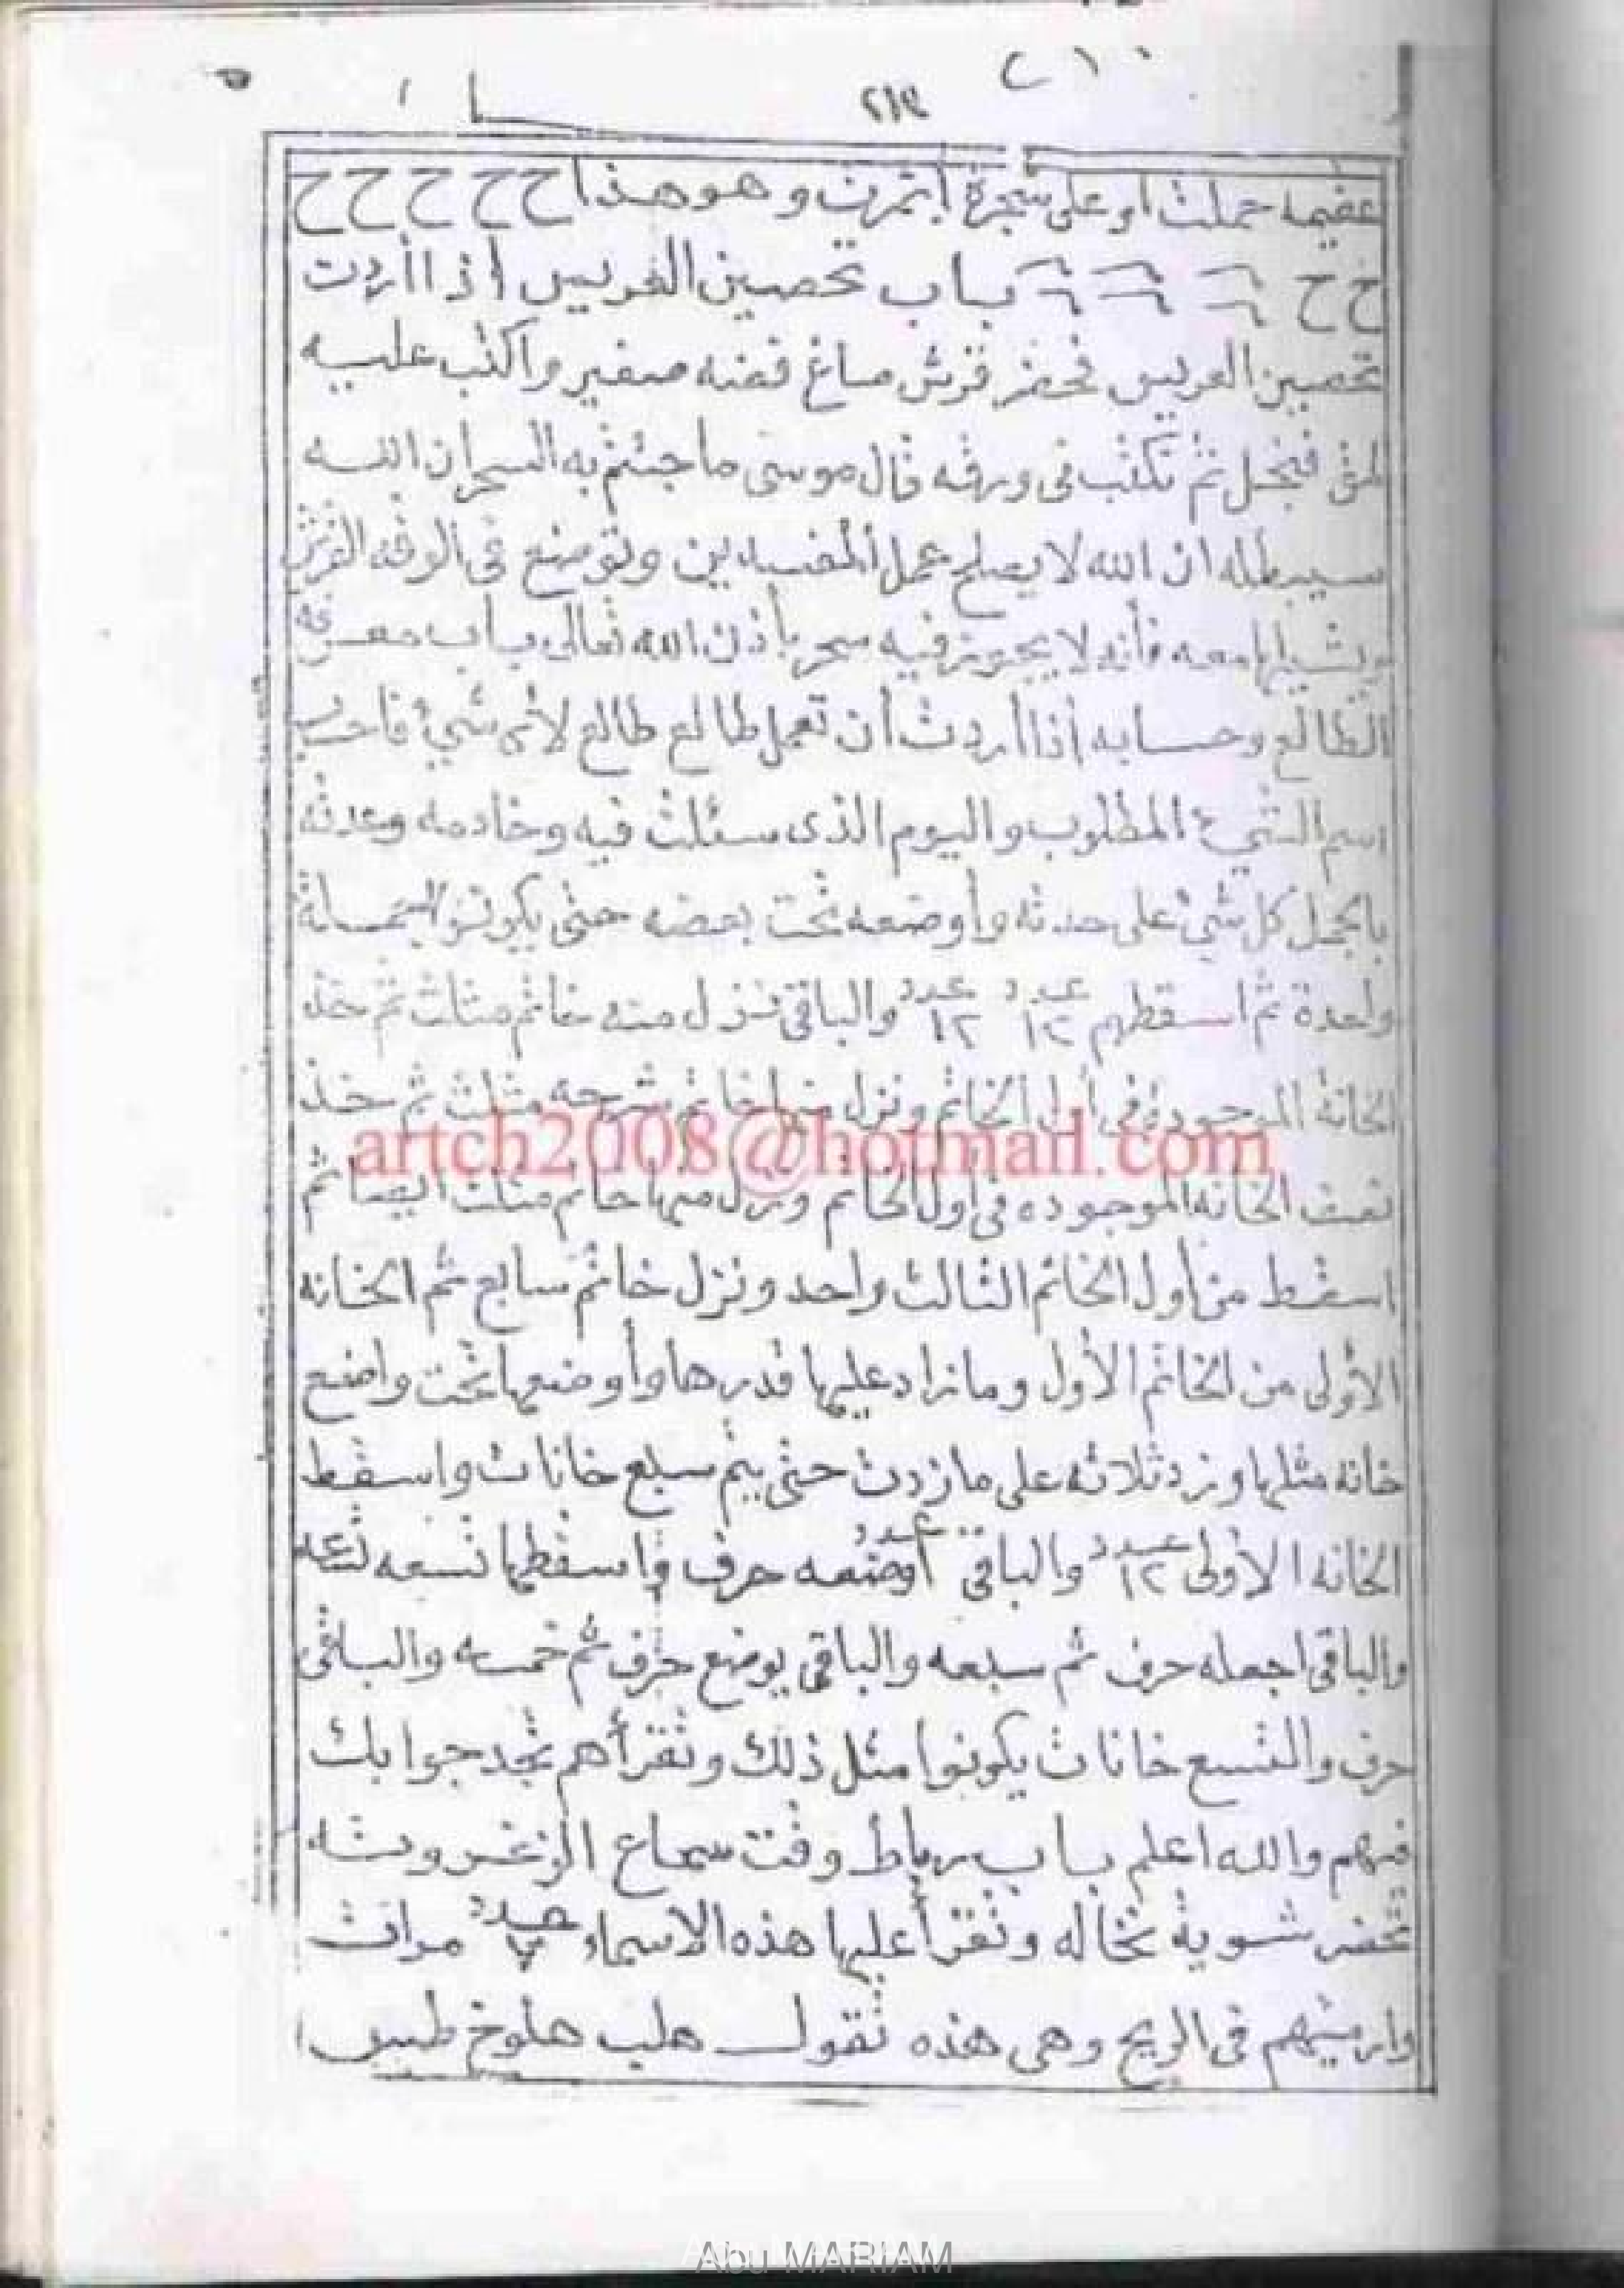 ٢١٣
عقيمه حملت او على شجرة أثمرت وهو هذا ح ح ح ح ح
ح ح باب تحصين العريس اذا أردت
تحصين العريس تحضر قرش صاغ فضه صغير واكتب عليه
ثم تكتب فى ورقه قال موسى ما جئتم به السحر ان الله
سيبطله ان الله لا يصلح عمل المفسدين وتوضع فى الورقه القرش
ويشيلها معه فأنه لا يجوز فيه سحر بأذن الله تعالى باب معرفة
الطالع وحسابه أذا أردت أن تعمل طالع طالع لأى شيئ فاحسب
اسم الشيئ المطلوب واليوم الذى سئلت فيه وخادمه وعدته
بالجمل كل شيئ على حدته وأوضعه تحت بعضه حتى يكونو
واحدة ثم اسقطهم عدد ١٢ عدد ١٢ والباقى تنزل منه خاتم مثلث ثم خذ
الخانة الموجودة فى أول الخاتم ونزل منها خاتم مثلث ثم خذ
تحت الخانه الموجوده فى اول الخاتم ونزل منها خاتم مثلث ايضا ثم
اسقط من أول الخاتم الثالث واحد ونزل خاتم سابع ثم الخانه
الاولى من الخاتم الأول وما زاد عليها قدرها وأوضعها تحت واضع
خانه مثلها وزد ثلاثه على ما زدت حتى يتم سبع خانات واسقط
الخانه الأولى عدد ١٢ والباقى أوضعه حرف واسقطها تسعه تسعه
والباقى اجعله حرف ثم سبعه والباقى يوضع حرف ثم خمسه والباقى
حرف والتسع خانات يكونوا مثل ذلك وتقرأهم تجد جوابك
فيهم والله اعلم باب رباط وقت سماع الزغروته
تحضر شوية نخاله وتقرأ عليها هذه الاسماء عدد ٧ مرات
وارميهم فى الريح وهى هذه تقول هلب هلوخ
artch2008@hotmail.com
Abu MARIAM